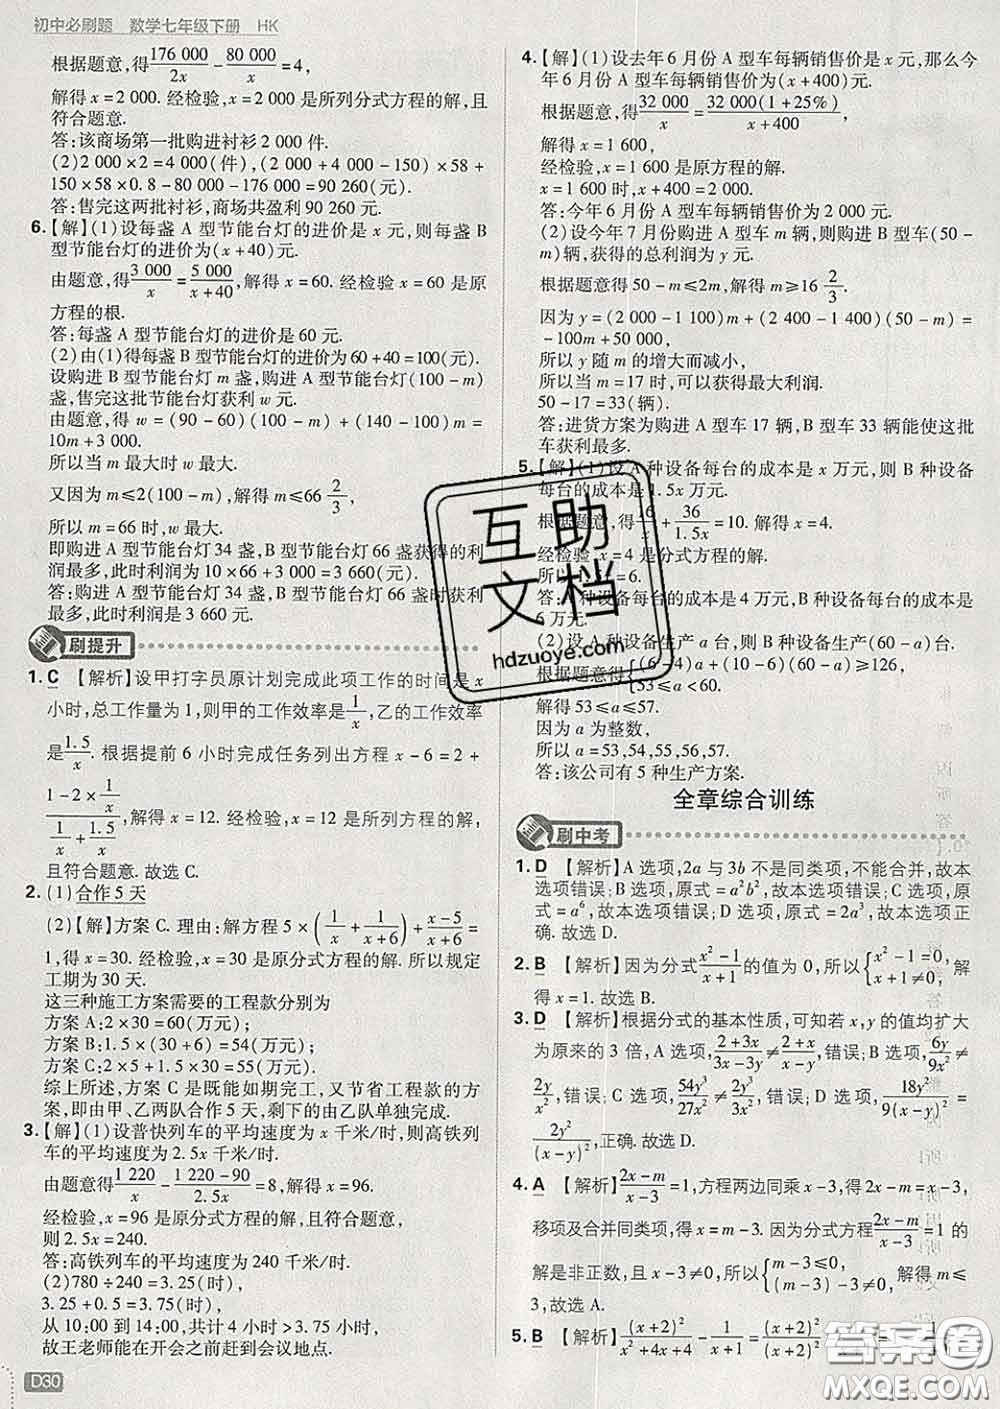 初中必刷题 数学七年级下册 HK
根据题意,得176 000/2x-80 000/x=4,
解得 x=2 000. 经检验,x=2 000 是所列分式方程的解,且
符合题意.
答:该商场第一批购进衬衫 2 000 件.
(2)2 000×2=4 000(件),(2 000+4 000-150)×58+
150×58×0.8-80 000-176 000=90 260(元).
答:售完这两批衬衫,商场共盈利 90 260 元.
6.【解】(1)设每盏 A 型节能台灯的进价是 x 元,则每盏 B
型节能台灯的进价为(x+40)元.
由题意,得3 000/x=5 000/(x+40),解得 x=60. 经检验 x=60 是原
方程的根.
答:每盏 A 型节能台灯的进价是 60 元.
(2)由(1)得每盏 B 型节能台灯的进价为 60+40=100(元).
设购进 B 型节能台灯 m 盏,购进 A 型节能台灯(100-m)
盏,售完这批节能台灯获利 w 元.
由题意,得 w=(90-60)(100-m)+(140-100)m=
10m+3 000.
所以当 m 最大时 w 最大.
又因为 m≤2(100-m),解得 m≤66 2/3,
所以 m=66 时,w 最大.
即购进 A 型节能台灯 34 盏,B 型节能台灯 66 盏获得的利
润最多,此时利润为 10×66+3 000=3 660(元).
答:购进 A 型节能台灯 34 盏,B 型节能台灯 66 盏时获利
最多,此时利润是 3 660 元.
刷提升
1. C 【解析】设甲打字员原计划完成此项工作的时间是 x
小时,总工作量为 1,则甲的工作效率是1/x,乙的工作效率
是1.5/x. 根据提前 6 小时完成任务列出方程 x-6=2+
(1-2×1/x)/(1/x+1.5/x),解得 x=12. 经检验,x=12 是所列方程的解,
且符合题意. 故选 C.
2. (1)合作 5 天
(2)【解】方案 C. 理由:解方程 5×(1/x+1/(x+6))+(x-5)/(x+6)=
1,得 x=30. 经检验,x=30 是原分式方程的解. 所以规定
工期为 30 天.
这三种施工方案需要的工程款分别为
方案 A:2×30=60(万元);
方案 B:1.5×(30+6)=54(万元);
方案 C:2×5+1.5×30=55(万元).
综上所述,方案 C 是既能如期完工,又节省工程款的方
案,即由甲、乙两队合作 5 天,剩下的由乙队单独完成.
3.【解】(1)设普快列车的平均速度为 x 千米/时,则高铁列
车的平均速度为 2.5x 千米/时.
由题意得1 220/x-(1 220-90)/2.5x=8,解得 x=96.
经检验,x=96 是原分式方程的解,且符合题意,
则 2.5x=240.
答:高铁列车的平均速度为 240 千米/时.
(2)780÷240=3.25(时),
3.25+0.5=3.75(时),
从 10:00 到 14:00,共计 4 小时>3.75 小时,
故王老师能在开会之前赶到会议地点.
D30
4.【解】(1)设去年 6 月份 A 型车每辆销售价是 x 元,那么今
年 6 月份 A 型车每辆销售价为(x+400)元.
根据题意,得32 000/x=32 000(1+25%)/(x+400),
解得 x=1 600,
经检验,x=1 600 是原方程的解.
x=1 600 时,x+400=2 000.
答:今年 6 月份 A 型车每辆销售价为 2 000 元.
(2)设今年 7 月份购进 A 型车 m 辆,则购进 B 型车(50-
m)辆,获得的总利润为 y 元.
根据题意得 50-m≤2m,解得 m≥16 2/3.
因为 y=(2 000-1 100)m+(2 400-1 400)(50-m)=
-100m+50 000,
所以 y 随 m 的增大而减小,
所以当 m=17 时,可以获得最大利润.
50-17=33(辆).
答:进货方案为购进 A 型车 17 辆,B 型车 33 辆能使这批
车获利最多.
5.【解】(1)设 A 种设备每台的成本是 x 万元,则 B 种设备
每台的成本是 1.5x 万元.
根据题意,得16/x+36/1.5x=10. 解得 x=4.
经检验,x=4 是分式方程的解.
所以 1.5x=6.
答:A 种设备每台的成本是 4 万元,B 种设备每台的成本是
6 万元.
(2)设 A 种设备生产 a 台,则 B 种设备生产(60-a)台.
根据题意得{(6-4)a+(10-6)(60-a)≥126,
53≤a<60.
解得 53≤a≤57.
因为 a 为整数,
所以 a=53,54,55,56,57.
答:该公司有 5 种生产方案.
全章综合训练
刷中考
1. D 【解析】A 选项,2a 与 3b 不是同类项,不能合并,故本
选项错误;B 选项,原式=a²b²,故本选项错误;C 选项,原
式=a⁶,故本选项错误;D 选项,原式=2a³,故本选项正
确. 故选 D.
2. B 【解析】因为分式(x²-1)/(x+1)的值为 0,所以{x²-1=0, x+1≠0, 解
得 x=1. 故选 B.
3. D 【解析】根据分式的基本性质,可知若 x,y 的值均扩大
为原来的 3 倍,A 选项,(2+3x)/(3x-3y)≠(2+x)/(x-y),错误;B 选项,6y/9x²≠
2y/x²,错误;C 选项,54y³/27x²≠2y³/3x²,错误;D 选项,18y²/9(x-y)²=
2y²/(x-y)²,正确. 故选 D.
4. A 【解析】(2x-m)/(x-3)=1,方程两边同乘 x-3,得 2x-m=x-3,
移项及合并同类项,得 x=m-3. 因为分式方程(2x-m)/(x-3)=1 的
解是非正数,且 x-3≠0,所以{m-3≤0, (m-3)-3≠0, 解得 m≤
3,故选 A.
5. B 【解析】(x+2)²/(x²+4x+4)-1/(x+1)=(x+2)²/(x+2)²
互助
文档
hdzuoye.com
答案圈
MXQE.COM